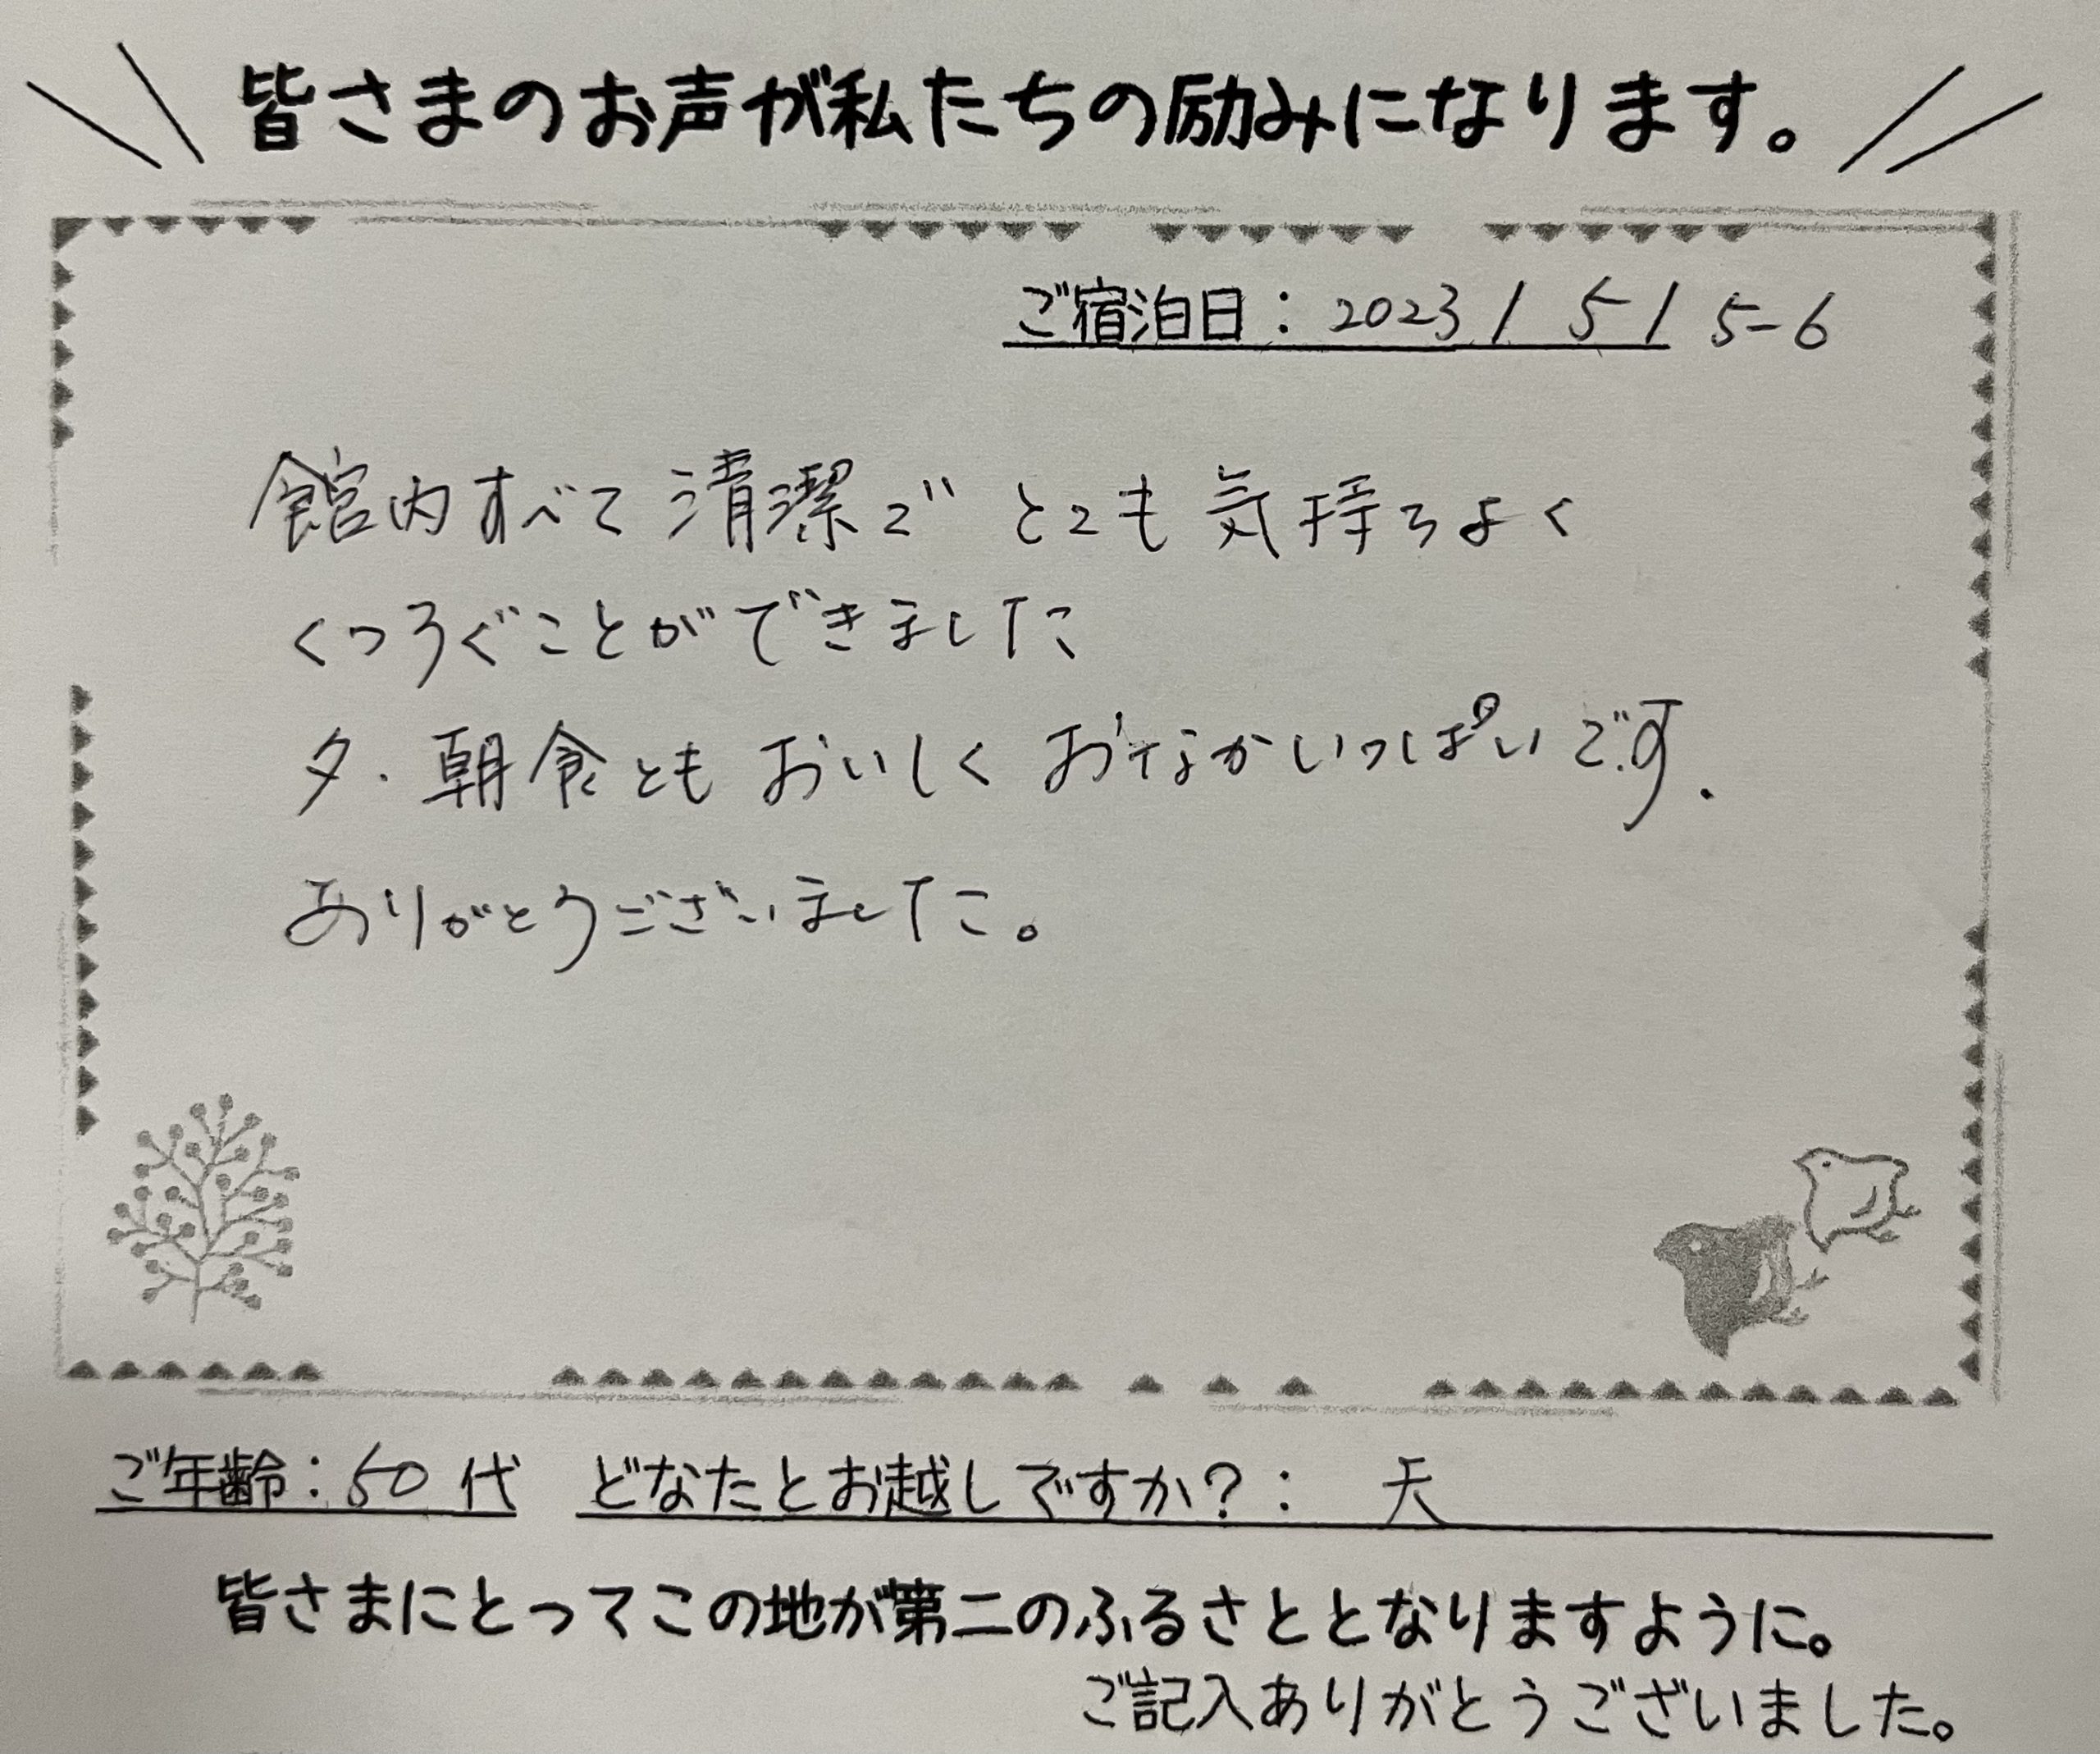 皆さまのお声が私たちの励みになります。
ご宿泊日：2023/5/5-6
館内すべて清潔で とても気持ちよく
くつろぐことができました
夕・朝食とも おいしく おなかいっぱいです.
ありがとうございました。
ご年齢：50代 どなたとお越しですか？： 夫
皆さまにとってこの地が第二のふるさととなりますように。
ご記入ありがとうございました。